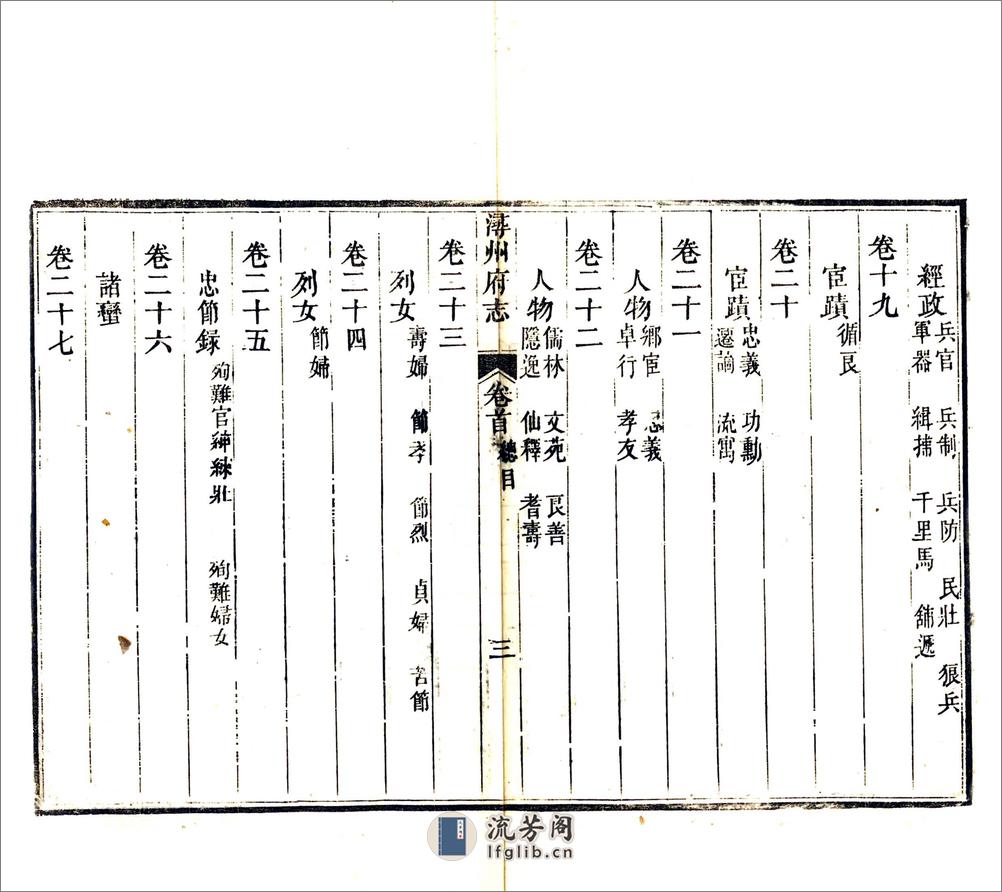 經政 兵官 兵制 兵防 民壯 狼兵
軍器 緝捕 千里馬 舖遞
卷十九
宦蹟 循良
卷二十
宦蹟 忠義 功勳
遷謫 流寓
卷二十一
人物 鄉宦 忠義
卓行 孝友
卷二十二
人物 儒林 文苑 良善
隱逸 仙釋 耆壽
潯州府志 卷首 總目 三
卷二十三
列女 壽婦 節孝 節烈 貞婦 苦節
卷二十四
列女 節婦
卷二十五
忠節録 殉難官紳練壯 殉難婦女
卷二十六
諸蠻
卷二十七
流芳阁
lfglib.cn